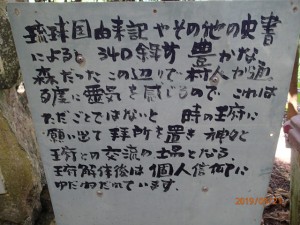 琉球国由来記やその他の史書
によると 340余年前 豊かな
森だったこの辺りで村人が通
る度に霊気を感じるので、これは
ただごとではないと 時の王府に
願い出て拝所を置き神々と
王府との交流の場となる.
王府解体後は個人信仰に
ゆだねられています.